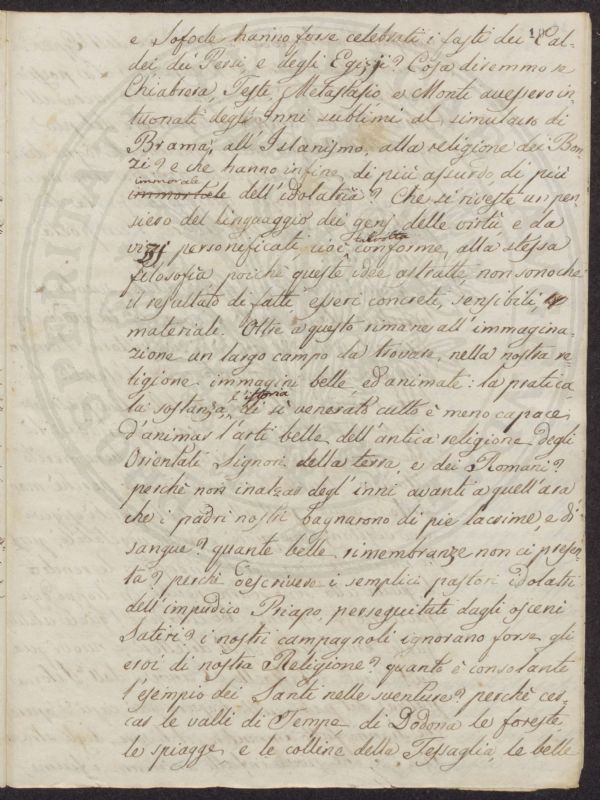 19
e Sofocle hanno forse celebrati i fasti dei Cal-
dei dei Persi, e degli Egizji? Cosa diremmo se
Chiabrera, Teste, Metastasio, e Monti avessero in-
tuonati degl'Inni sublimi al simulacro di
Brama, all'Islanismo, alla religione dei Bon-
zi? e che hanno infine di più assurdo, di più
immorale
immortale dell'idolatria? Che si riveste un pen-
siero del linguaggio dei genj delle virtù e da
vizj personificate, ciò è talvolta conforme, alla stessa
filosofia, poichè queste idee astratte, non sono che
il resultato di fatti, esseri concreti, sensibili, e
materiale. Oltre a questo rimane all'immagina-
zione un largo campo da trovare, nella nostra re-
ligione immagini belle, ed animate: la pratica
la sostanza, l'istoria di sì venerato culto è meno capace
d'animar l'arti belle dell'antica religione degli
Orientali Signori della terra, e dei Romani?
perchè non inalzar degl'inni avanti a quell'ara
che i padri nostri bagnarono di pie lacrime, e di
sangue? quante belle rimembranze non ci presen-
ta? perchè descrivere i semplici pastori idolatri
dell'impudico Priapo, perseguitati dagli osceni
Satiri? i nostri campagnoli ignorano forse gli
eroi di nostra Religione? quanto è consolante
l'esempio dei Santi nelle sventure? perchè cer-
car le valli di Tempe, di Dodona le foreste,
le spiagge, e le colline della Tessaglia, le belle